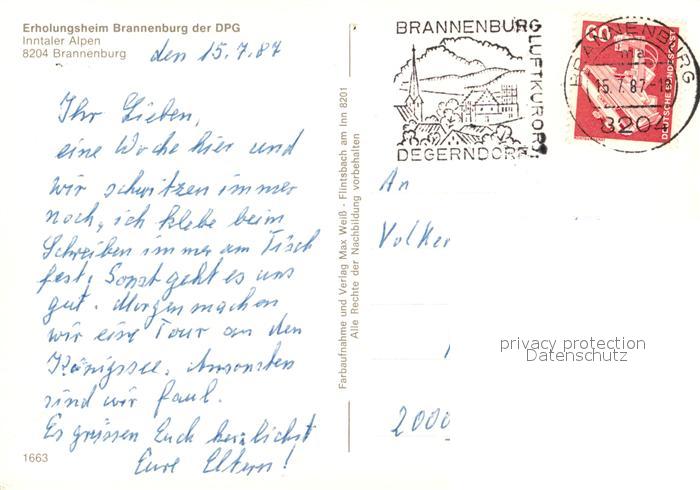 Erholungsheim Brannenburg der DPG
Inntaler Alpen
8204 Brannenburg
den 15.7.87
Ihr Lieben,
eine Woche hier und
wir schwitzen immer
noch, ich klebe beim
Schreiben immer am Tisch
fest. Sonst geht es uns
gut. Morgen machen
wir eine Tour an den
Königssee. Ansonsten
sind wir faul.
Es grüssen Euch herzlichst
Eure Eltern!
1663
Farbaufnahme und Verlag Max Weiß · Flintsbach am Inn 8201
Alle Rechte der Nachbildung vorbehalten
BRANNENBURG
LUFTKURORT
DEGERNDORF
60
DEUTSCHE BUNDESPOST
BRANNENBURG
15.7.87-18
8204
An
Volker
privacy protection
Datenschutz
2000